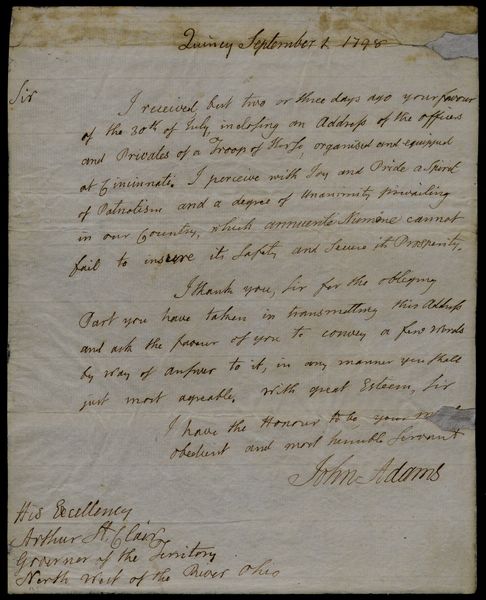 Quincy September 1 1798
Sir
I received but two or three days ago your favour
of the 30th of July, inclosing an Address of the officers
and Privates of a Troop of Horse, organised and equipped
at Cincinnati. I perceive with Joy and Pride a Spirit
of Patriotism and a degree of Unanimity prevailing
in our Country, which annuente Numine cannot
fail to insure its Safety and Secure its Prosperity.
I thank you, Sir for the obliging
Part you have taken in transmitting this Address
and ask the favour of you to convey a few Words
by Way of answer to it, in any manner you shall
judge most agreable, With great Esteem, Sir
I have the Honour to be, your
obedient and most humble Servant
John Adams
His Excellency
Arthur St. Clair
Governor of the Territory
North West of the River Ohio